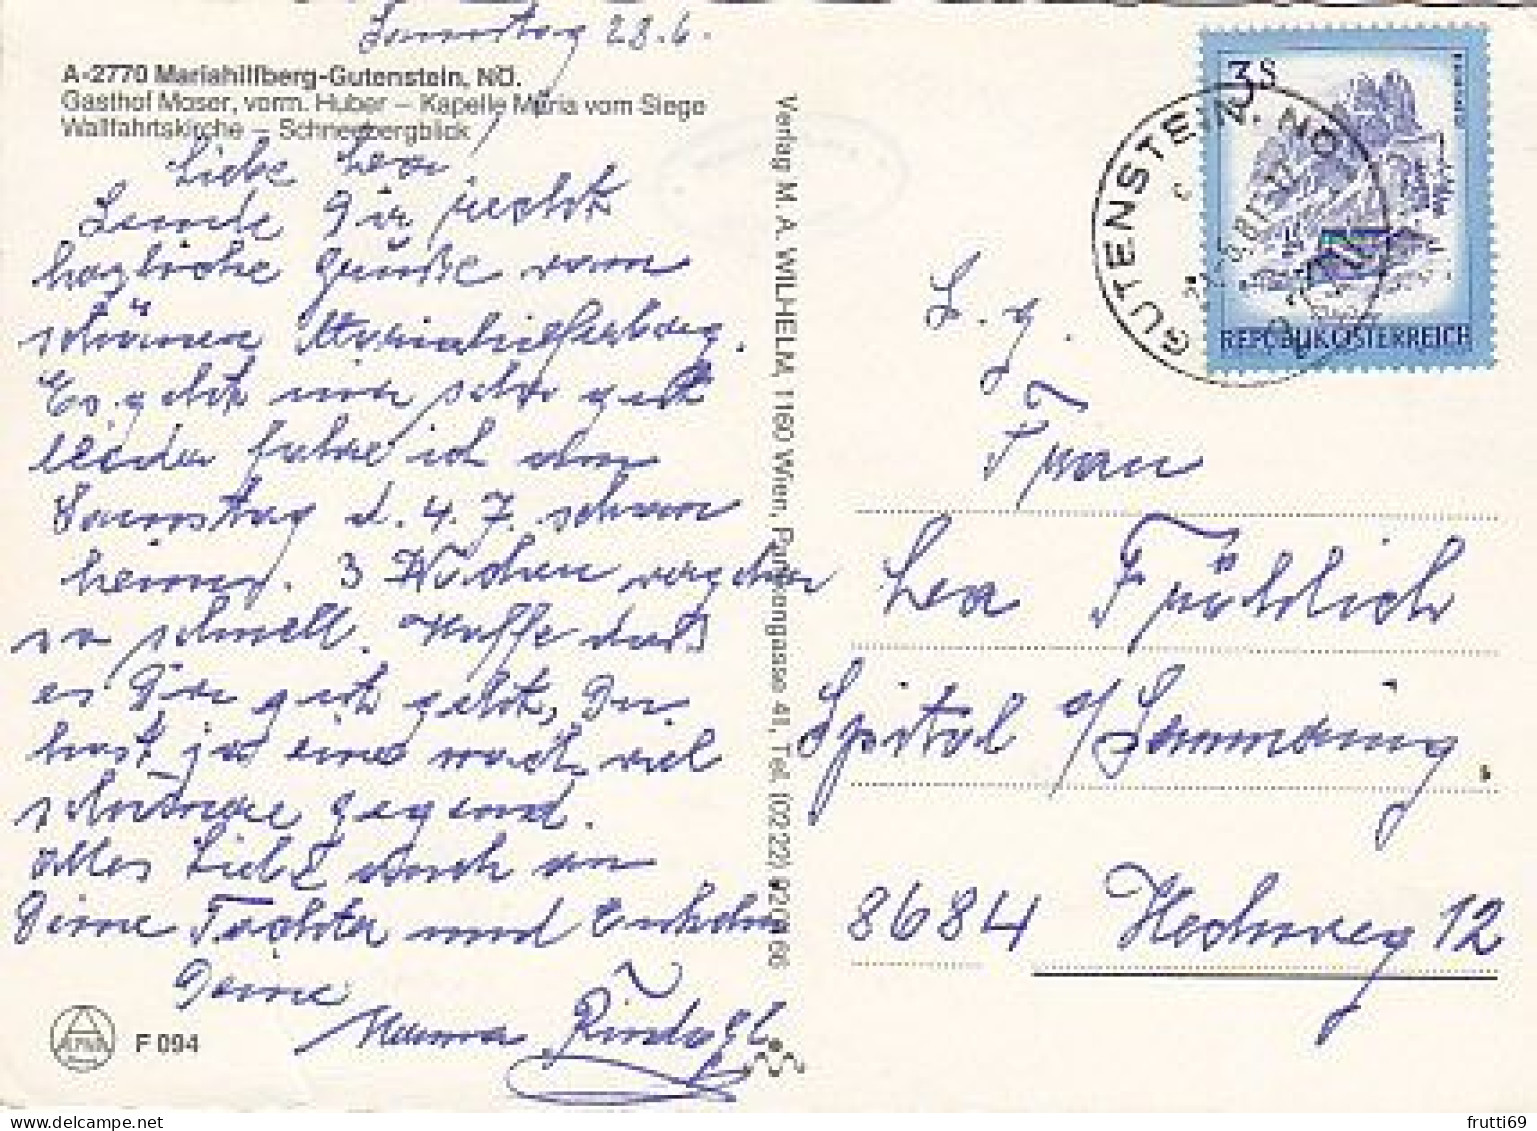 Samstag 28.6.
A-2770 Mariahilfberg-Gutenstein, NÖ.
Gasthof Moser, vorm. Huber – Kapelle Maria vom Siege
Wallfahrtskirche – Schneebergblick
Liebe Lea,
Sende Dir recht
herzliche Grüße vom
schönen Mariahilferberg.
Es geht mir sehr gut
leider fahre ich am
Samstag d. 4. 7. schon
heim. 3 Wochen vergehen
so schnell. Hoffe das
es Dir gut geht, Du
hast ja eine noch viel
schönere gegend.
Alles Liebe auch an
Deine Tochter und Enkelin
Deine
F 094
Verlag M. A. WILHELM, 1160 Wien, Tel. (0222)
3S
REPUBLIK ÖSTERREICH
GUTENSTEIN, NÖ
S. g.
Frau
Lea Fröhlich
Spital a/Semmering.
8684
12
frutti69